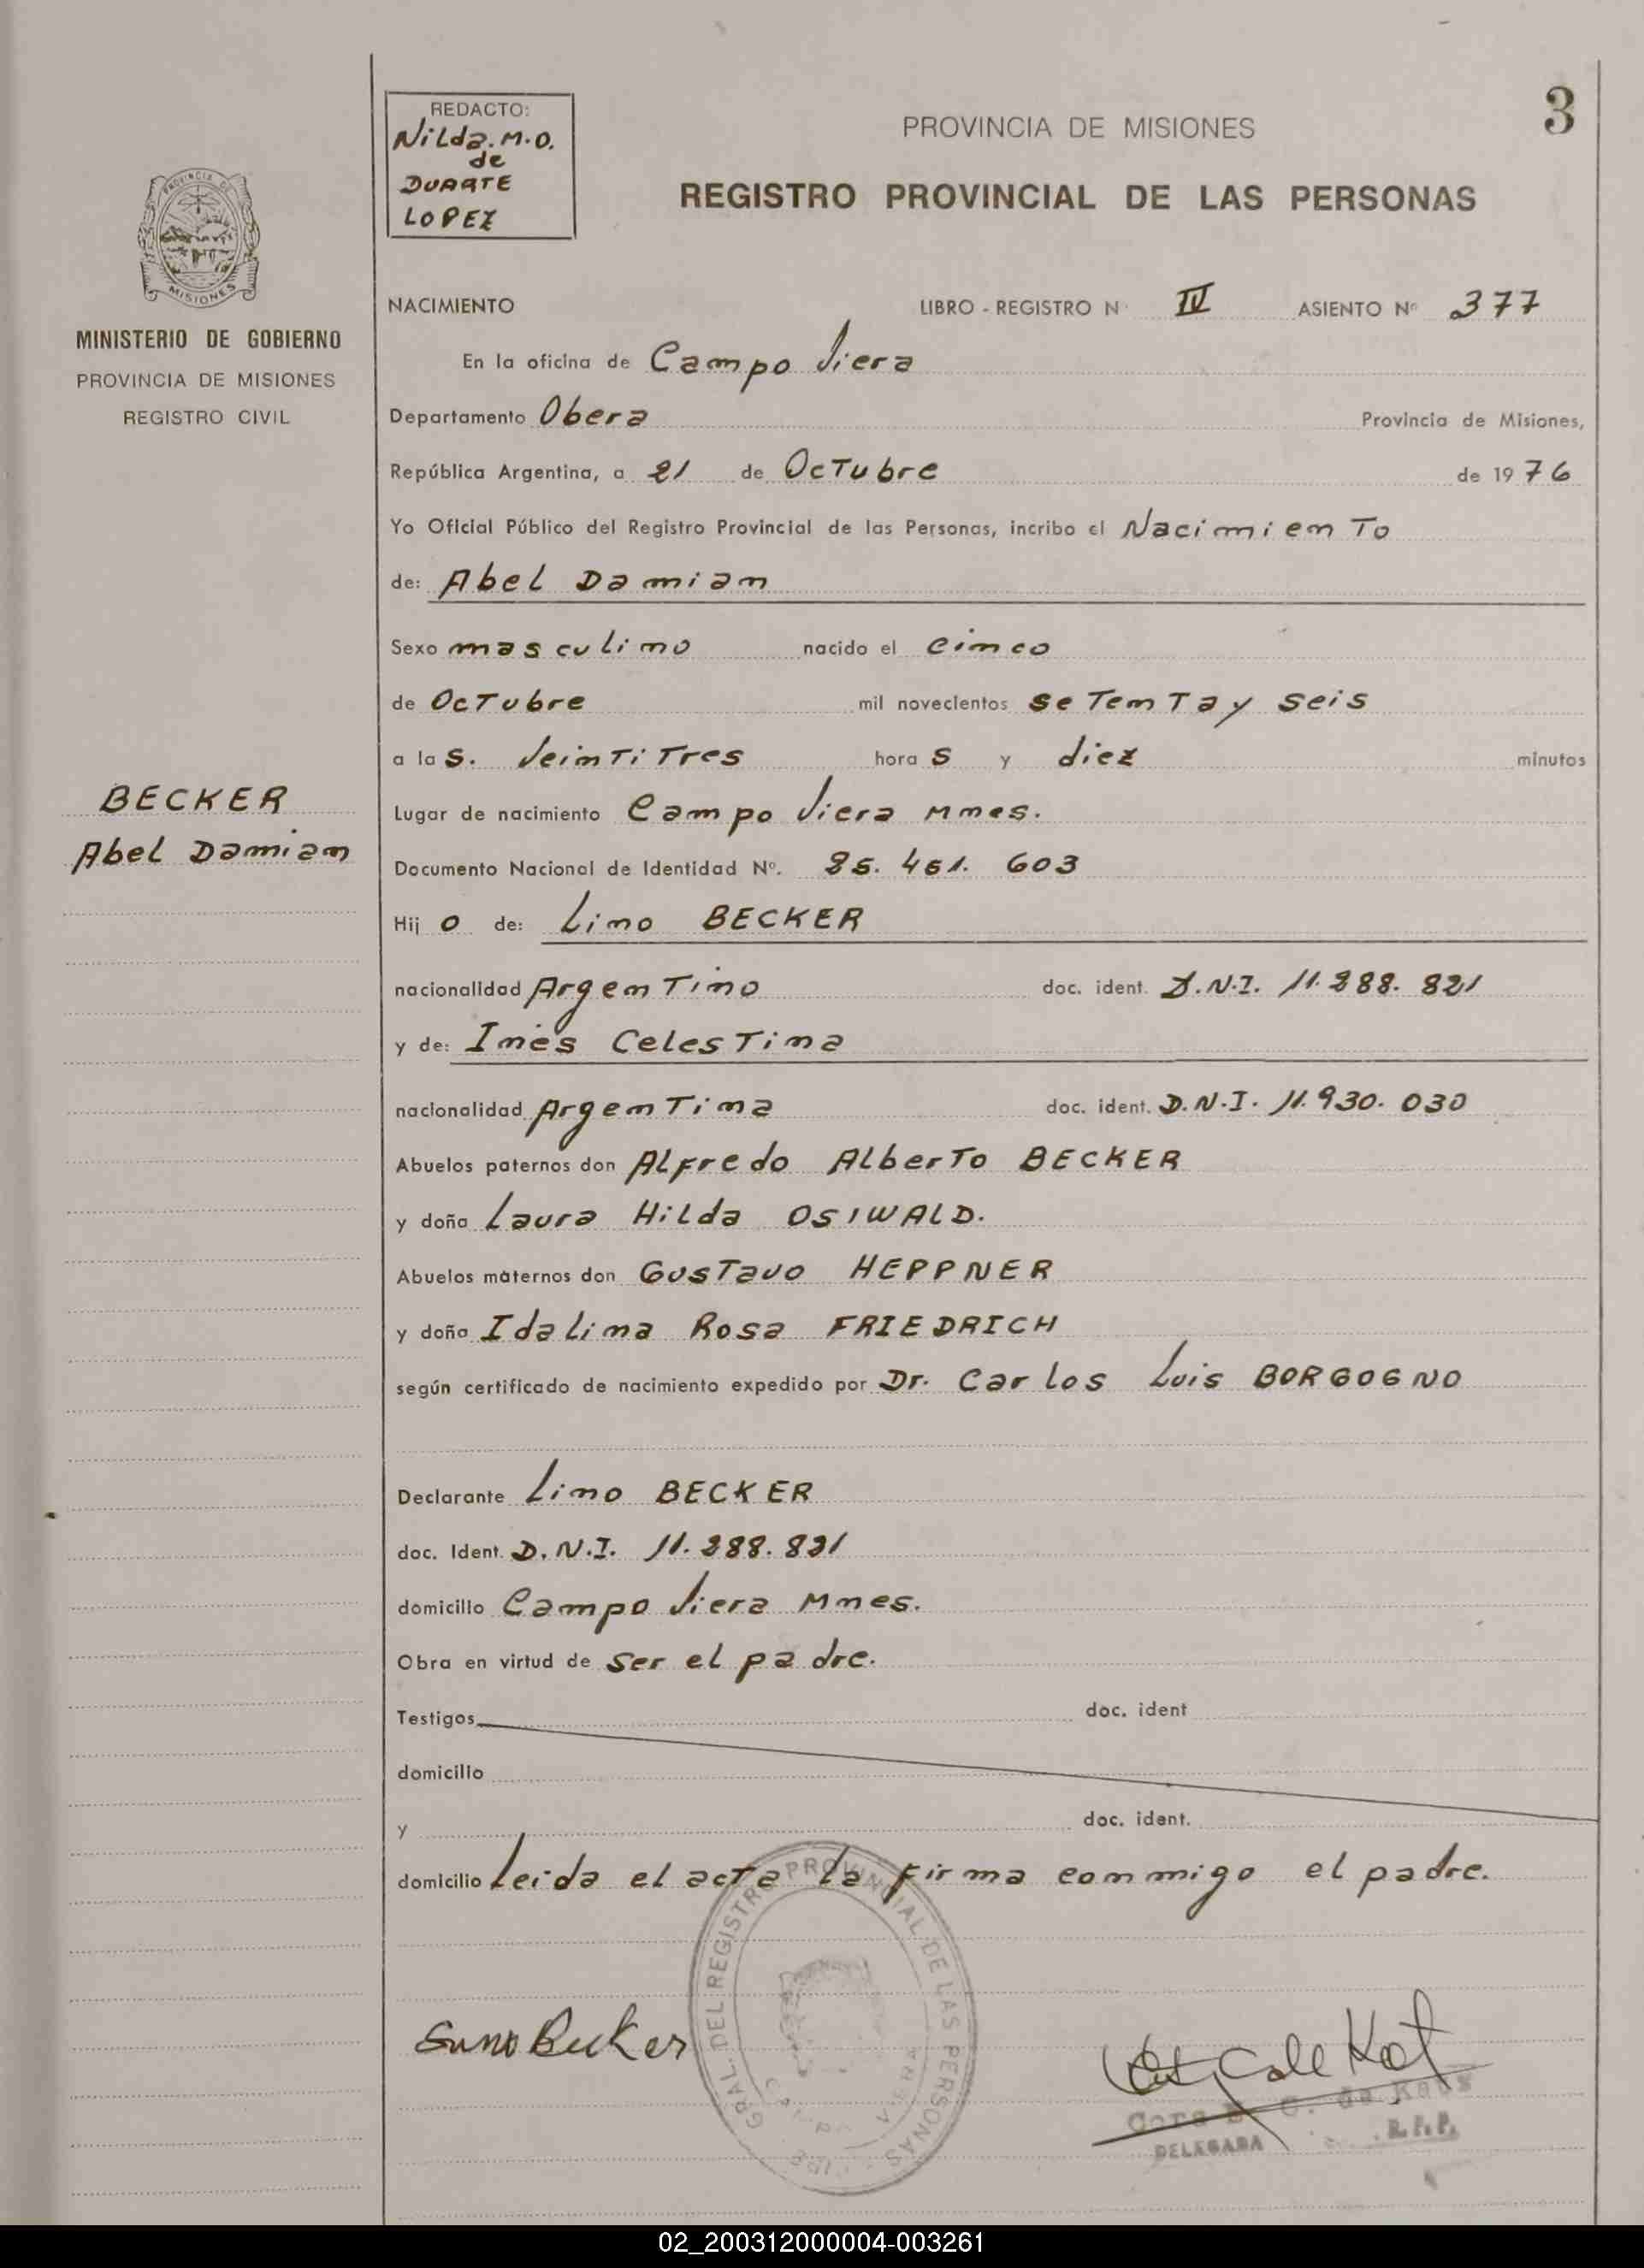 3
REDACTO:
Nilda. M. O.
de
DUARTE
LOPEZ
PROVINCIA DE MISIONES
REGISTRO PROVINCIAL DE LAS PERSONAS
PROVINCIA DE
MISIONES
MINISTERIO DE GOBIERNO
PROVINCIA DE MISIONES
REGISTRO CIVIL
NACIMIENTO LIBRO - REGISTRO N° IV ASIENTO N° 377
En la oficina de Campo Viera
Departamento Obera Provincia de Misiones,
República Argentina, a 21 de Octubre de 1976
Yo Oficial Público del Registro Provincial de las Personas, incribo el Nacimiento
de: Abel Damian
Sexo masculino nacido el cinco
de Octubre mil novecientos setenta y seis
a las. Veintitres horas y diez minutos
Lugar de nacimiento Campo Viera Mnes.
Documento Nacional de Identidad N°. 25. 461. 603
Hijo de: Lino BECKER
nacionalidad Argentino doc. ident. D.N.I. 11. 288. 821
y de: Inés Celestina
nacionalidad Argentina doc. ident. D.N.I. 11. 930. 030
Abuelos paternos don Alfredo Alberto BECKER
y doña Laura Hilda OSIWALD.
Abuelos maternos don Gustavo HEPPNER
y doña Idalina Rosa FRIEDRICH
según certificado de nacimiento expedido por Dr. Carlos Luis BORGOGNO
Declarante Lino BECKER
doc. Ident. D. N.I. 11. 288. 821
domicilio Campo Viera Mnes.
Obra en virtud de ser el padre.
Testigos doc. ident
domicilio
y doc. ident.
domicilio Leida el acta la firma conmigo el padre.
BECKER
Abel Damian
Lino Becker
GRAL. DEL REGISTRO PROVINCIAL DE LAS PERSONAS
C. de Kaus
DELEGADA R.P.P.
02_200312000004-003261